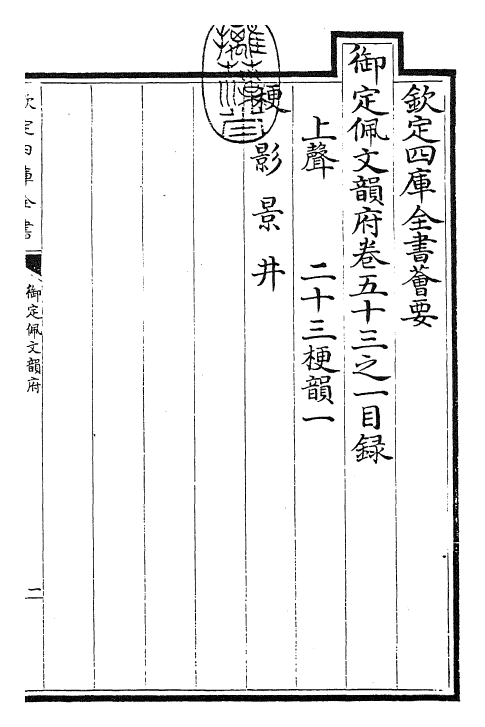 欽定四庫全書薈要
御定佩文韻府卷五十三之一目録
上聲 二十三梗韻一
梗 影 景 井
欽定四庫全書
御定佩文韻府
二